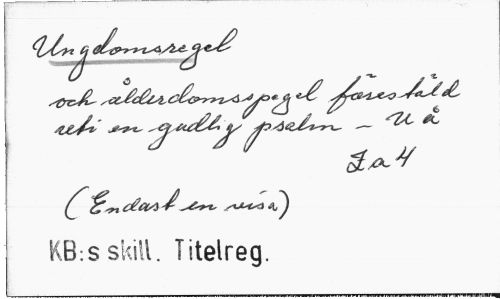 Ungdomsregel
och ålderdomsspegel förestäld
uti en gudlig psalm - U å
Ia 4
(Endast en visa)
KB:s skill. Titelreg.